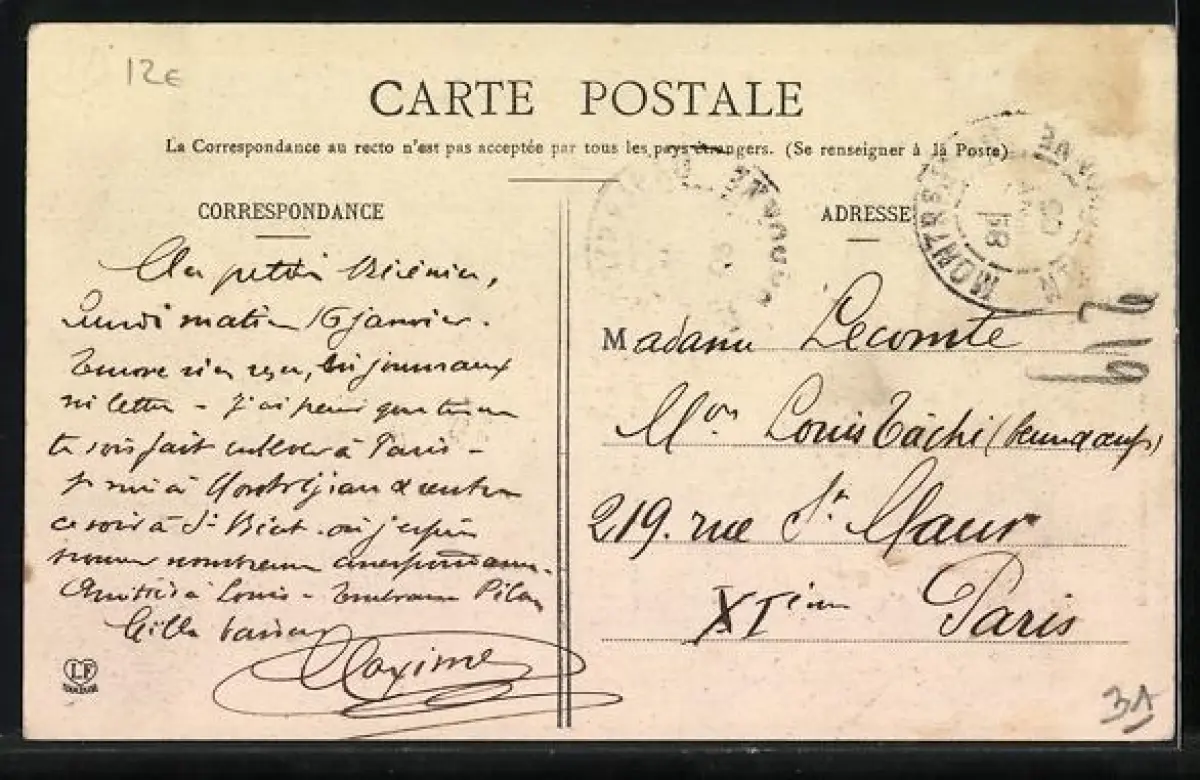 12€
CARTE POSTALE
La Correspondance au recto n'est pas acceptée par tous les pays étrangers. (Se renseigner à la Poste)
CORRESPONDANCE
ADRESSE
Ma petite
lundi matin 16 janvier.
Encore rien reçu, ni journaux
ni lettre - J'ai peur que tu ne
te sois fait enlever à Paris -
Je suis à Montréjeau et rentre
ce soir à St Béat. où j'espère
trouver nombreuse correspondance.
Amitiés à Louis - Embrasse
Mille baisers
Maxime
LF
TOULOUSE
MONTRÉJEAU
Madame Lecomte
Mon Louis Tâche
219. rue St Maur
XIème Paris
31